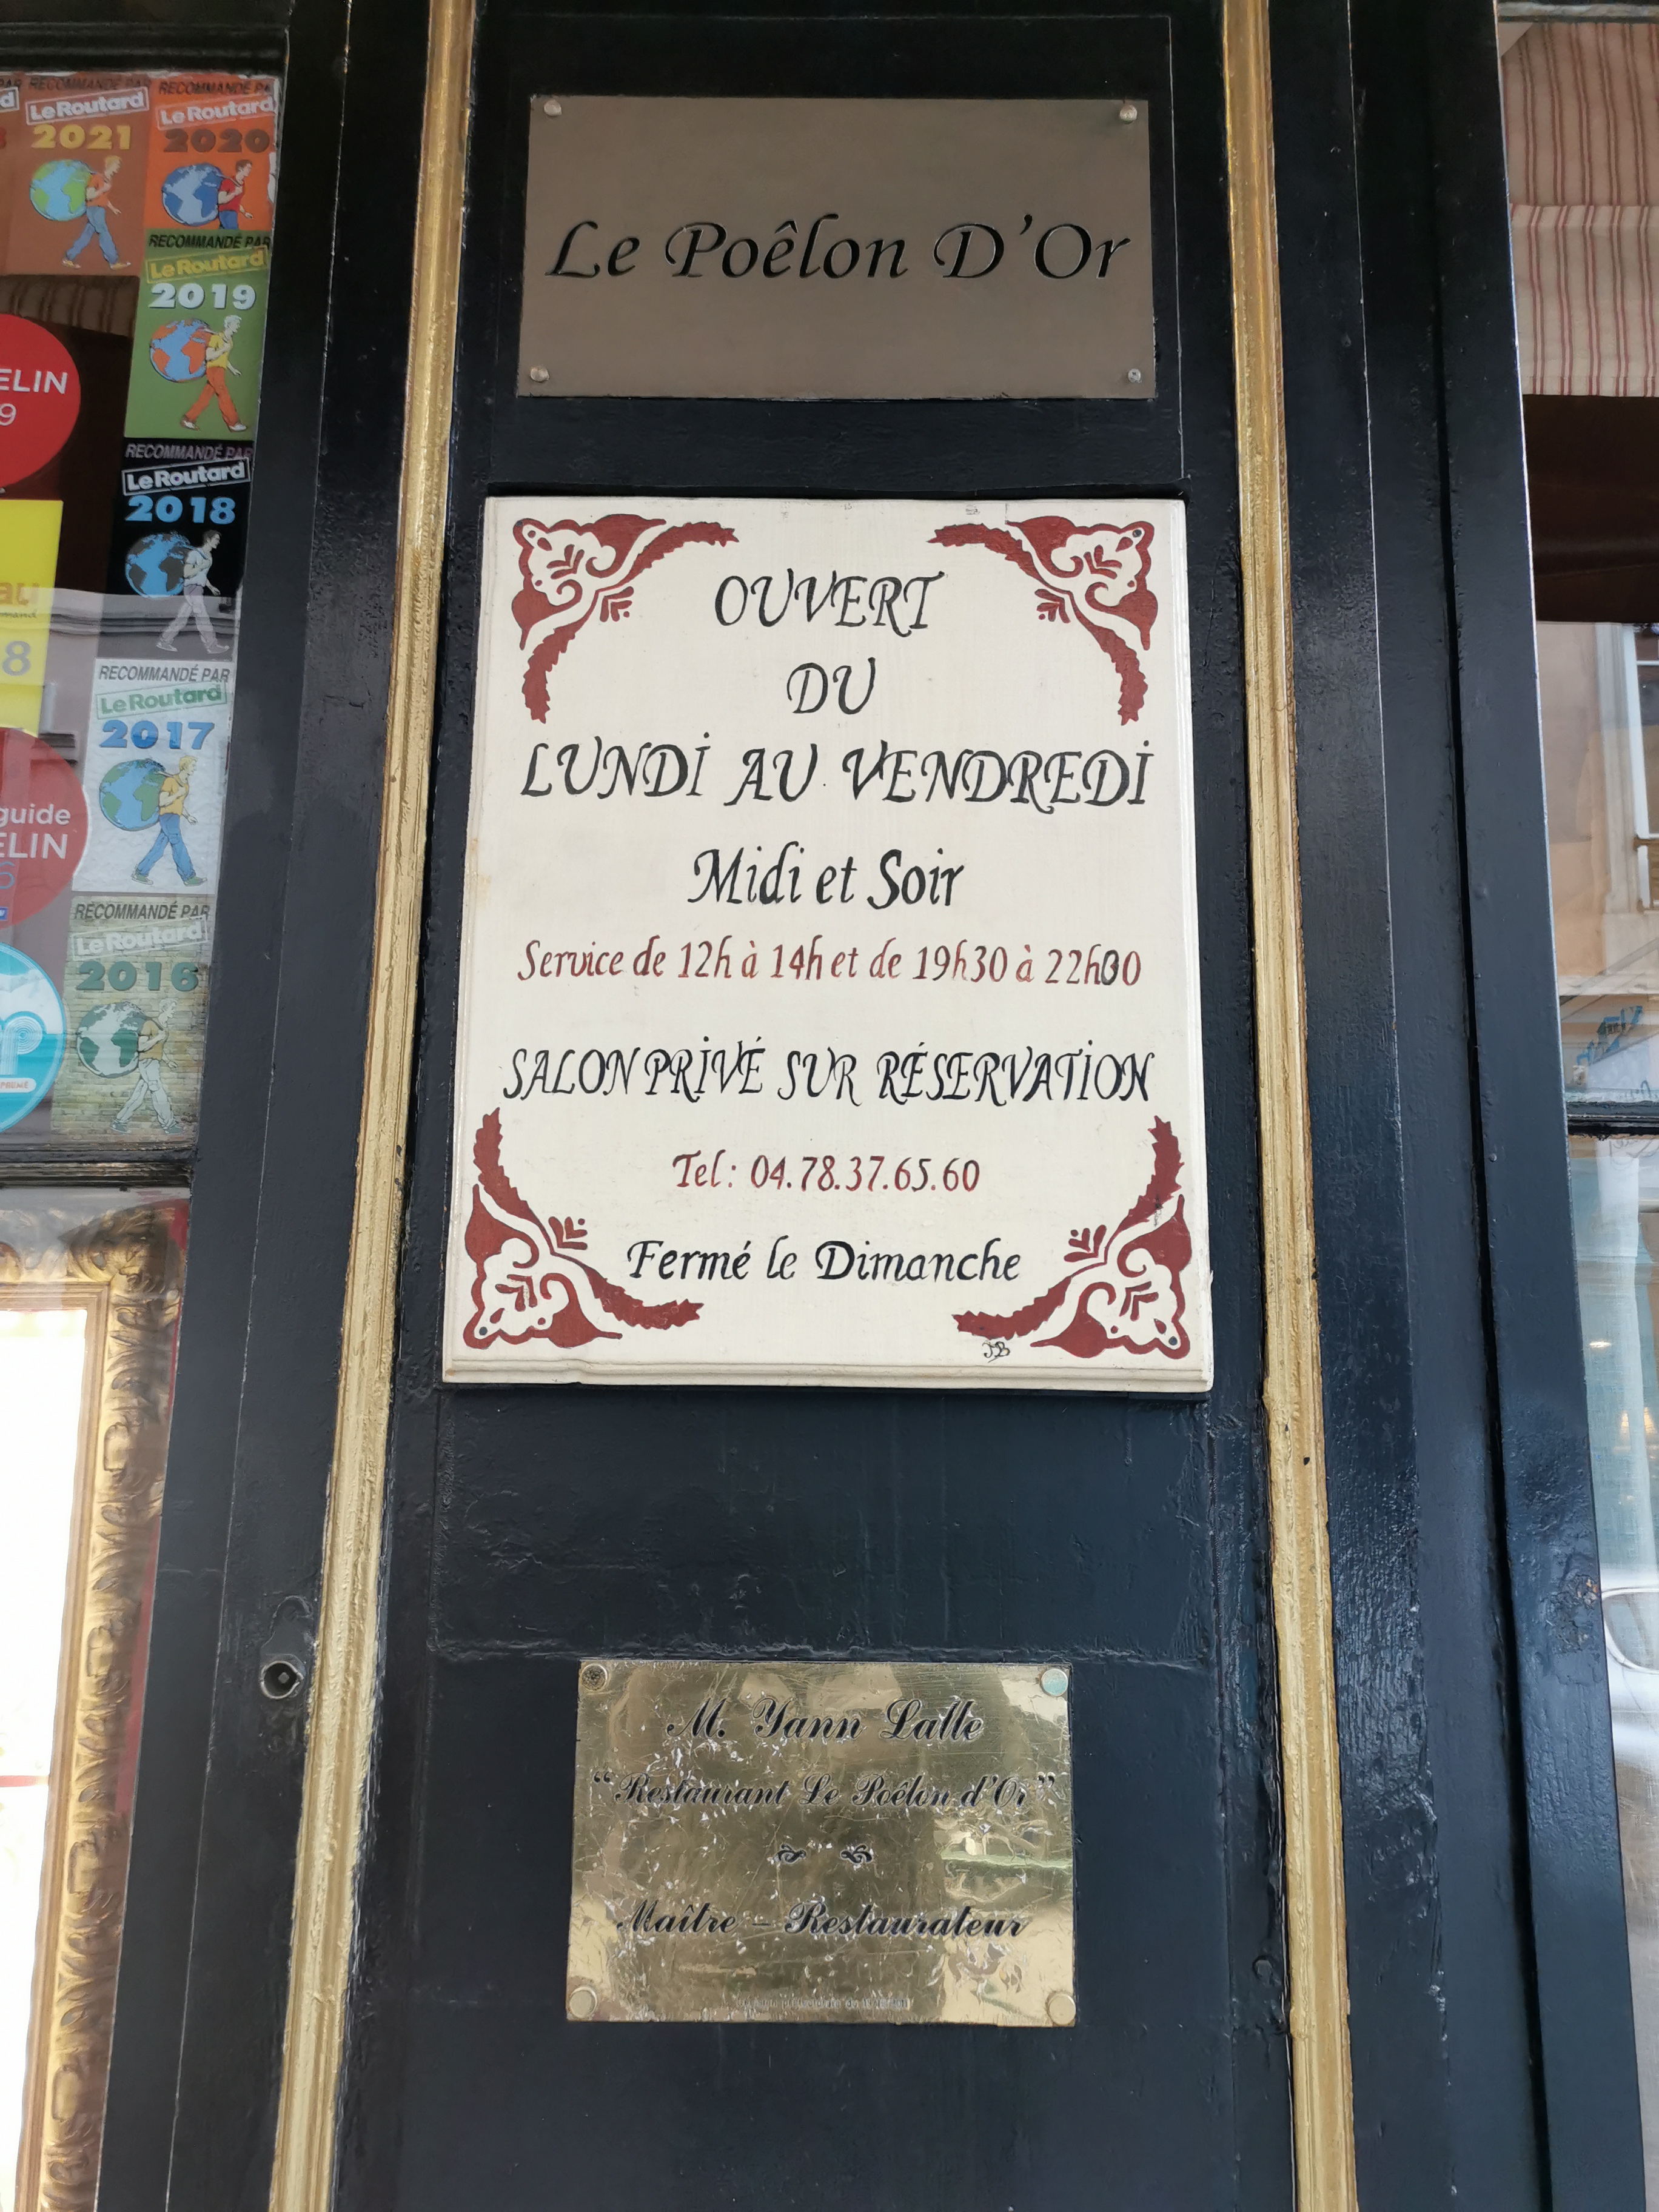 Le Poêlon D'Or
OUVERT
DU
LUNDI AU VENDREDI
Midi et Soir
Service de 12h à 14h et de 19h30 à 22h00
SALON PRIVÉ SUR RÉSERVATION
Tel: 04.78.37.65.60
Fermé le Dimanche
JB
M. Yann Lalle
"Restaurant Le Poêlon d'Or"
Maître - Restaurateur
RECOMMANDÉ PAR
Le Routard
2021
RECOMMANDÉ PA
Le Routard
2020
RECOMMANDÉ PAR
Le Routard
2019
RECOMMANDÉ PAR
Le Routard
2018
RECOMMANDÉ PAR
Le Routard
2017
RECOMMANDÉ PAR
Le Routard
2016
ELIN
9
au
8
guide
ELIN
6